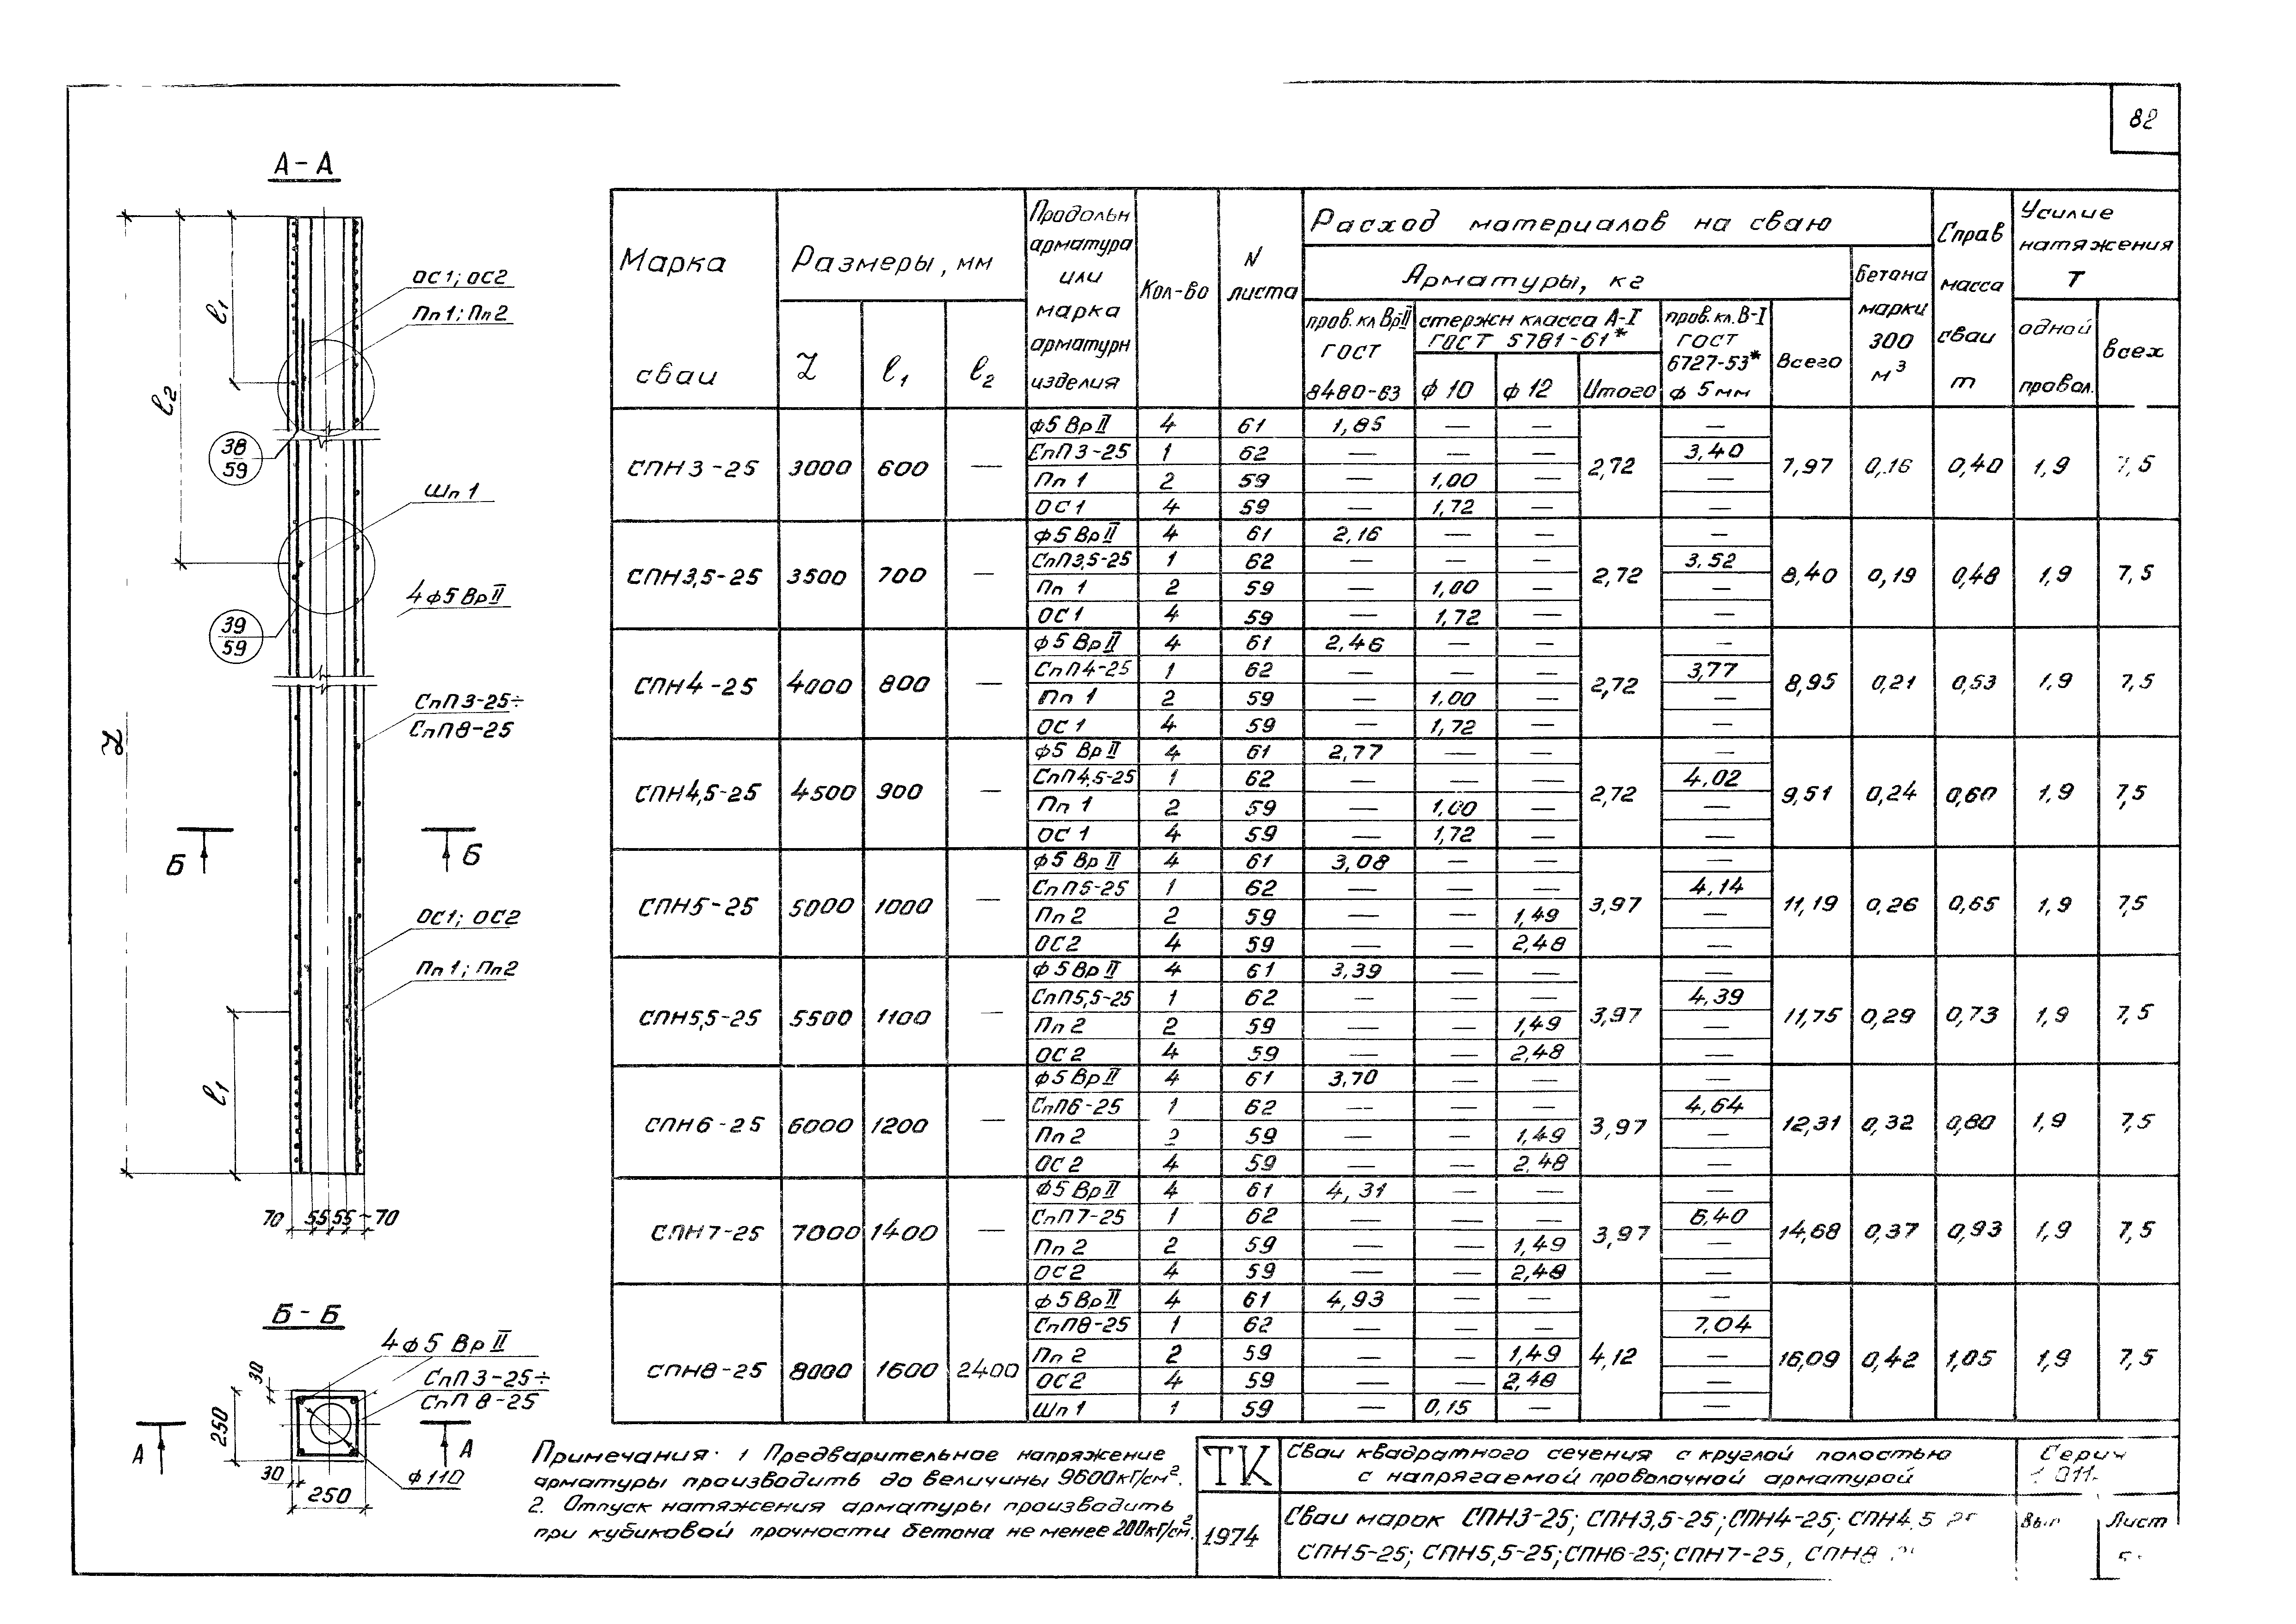 82
А-А
ОС1; ОС2
Пп1; Пп2
l1
l2
38
59
Шп1
4ф5ВрII
39
59
СпП3-25÷
СпП8-25
L
Б Б
ОС1; ОС2
Пп1; Пп2
l1
70 55 55 70
Б-Б
4ф5 ВрII
СпП3-25÷
СпП8-25
30
250
А А
30
250
ф110
Марка сваи
Размеры, мм
L l1 l2
Продольн арматура или марка арматурн изделия
Кол-во
N листа
Расход материалов на сваю
Арматуры, кг
пров. кл ВрII ГОСТ 8480-63
стержн класса А-I ГОСТ 5781-61*
ф10 ф12 Итого
пров. кл. В-I ГОСТ 6727-53* ф 5мм
Всего
Бетона марки 300 м3
Справ масса сваи т
Усилие натяжения Т
одной провол. всех
СПН3-25 3000 600 — 2,72 7,97 0,16 0,40 1,9 7,5
ф5ВрII 4 61 1,85 — — —
СпП3-25 1 62 — — — 3,40
Пп1 2 59 — 1,00 — —
ОС1 4 59 — 1,72 — —
СПН3,5-25 3500 700 — 2,72 8,40 0,19 0,48 1,9 7,5
ф5ВрII 4 61 2,16 — — —
СпП3,5-25 1 62 — — — 3,52
Пп1 2 59 — 1,00 — —
ОС1 4 59 — 1,72 — —
СПН4-25 4000 800 — 2,72 8,95 0,21 0,53 1,9 7,5
ф5ВрII 4 61 2,46 — — —
СпП4-25 1 62 — — — 3,77
Пп1 2 59 — 1,00 — —
ОС1 4 59 — 1,72 — —
СПН4,5-25 4500 900 — 2,72 9,51 0,24 0,60 1,9 7,5
ф5ВрII 4 61 2,77 — — —
СпП4,5-25 1 62 — — — 4,02
Пп1 2 59 — 1,00 — —
ОС1 4 59 — 1,72 — —
СПН5-25 5000 1000 — 3,97 11,19 0,26 0,65 1,9 7,5
ф5ВрII 4 61 3,08 — — —
СпП5-25 1 62 — — — 4,14
Пп2 2 59 — — 1,49 —
ОС2 4 59 — — 2,48 —
СПН5,5-25 5500 1100 — 3,97 11,75 0,29 0,73 1,9 7,5
ф5ВрII 4 61 3,39 — — —
СпП5,5-25 1 62 — — — 4,39
Пп2 2 59 — — 1,49 —
ОС2 4 59 — — 2,48 —
СПН6-25 6000 1200 — 3,97 12,31 0,32 0,80 1,9 7,5
ф5ВрII 4 61 3,70 — — —
СпП6-25 1 62 — — — 4,64
Пп2 2 59 — — 1,49 —
ОС2 4 59 — — 2,48 —
СПН7-25 7000 1400 — 3,97 14,68 0,37 0,93 1,9 7,5
ф5ВрII 4 61 4,31 — — —
СпП7-25 1 62 — — — 6,40
Пп2 2 59 — — 1,49 —
ОС2 4 59 — — 2,48 —
СПН8-25 8000 1600 2400 4,12 16,09 0,42 1,05 1,9 7,5
ф5ВрII 4 61 4,93 — — —
СпП8-25 1 62 — — — 7,04
Пп2 2 59 — — 1,49 —
ОС2 4 59 — — 2,48 —
Шп1 1 59 — 0,15 — —
Примечания: 1 Предварительное напряжение
арматуры производить до величины 9600кг/см2.
2. Отпуск натяжения арматуры производить
при кубиковой прочности бетона не менее 200кг/см2.
ТК
1974
Сваи квадратного сечения с круглой полостью
с напрягаемой проволочной арматурой
Сваи марок СПН3-25; СПН3,5-25; СПН4-25; СПН4,5-25
СПН5-25; СПН5,5-25; СПН6-25; СПН7-25, СПН8
Лист